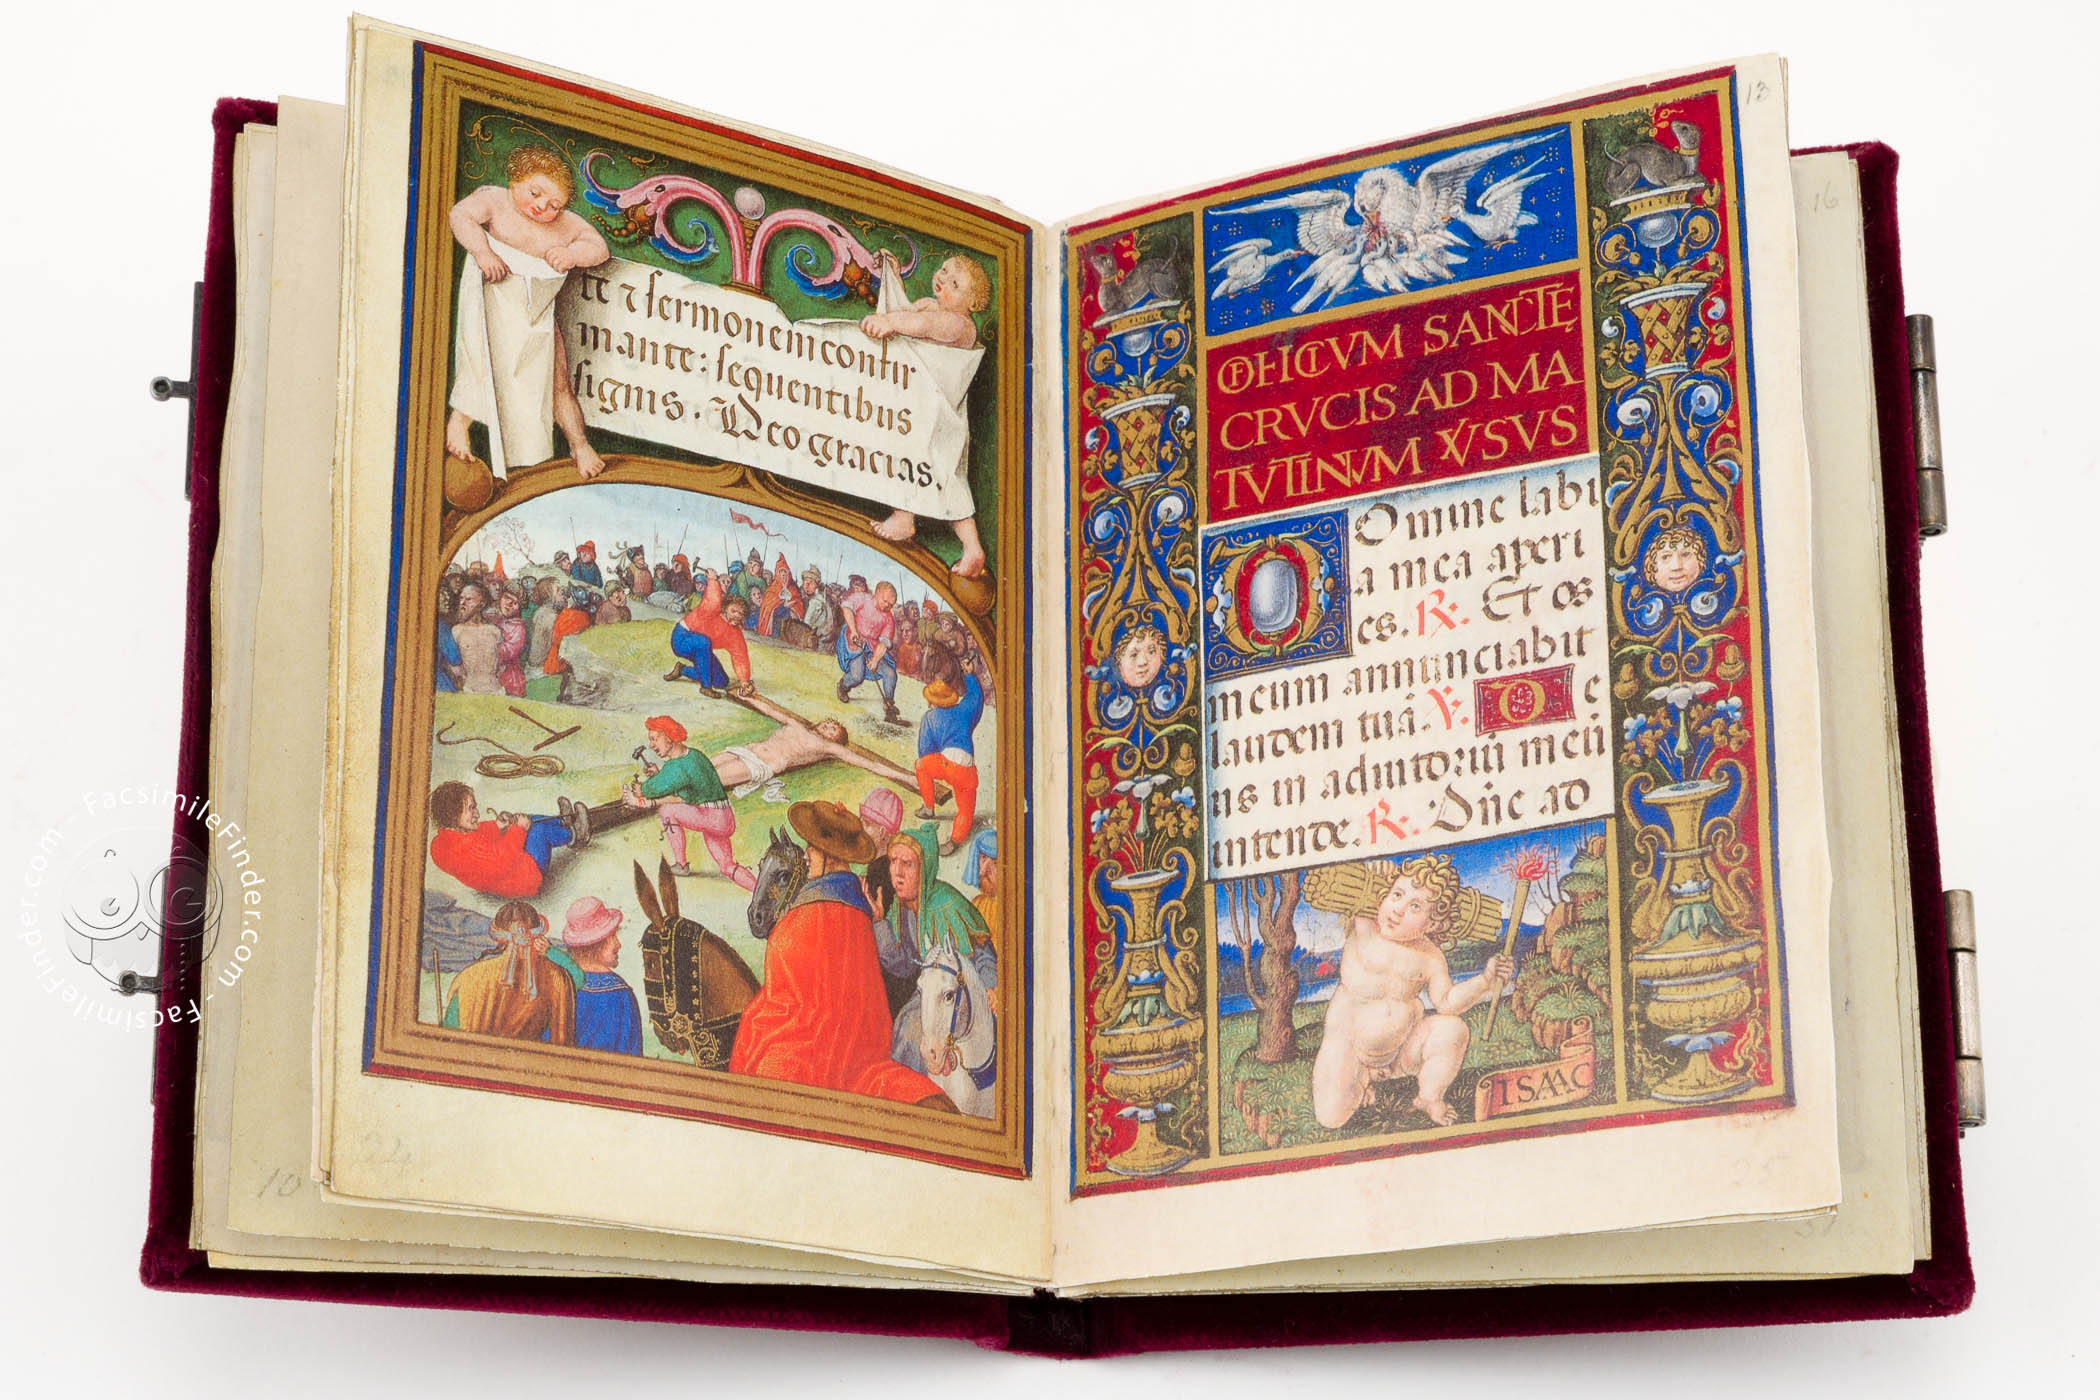 te ⁊ sermonem confir
mante: sequentibus
signis. Deo gracias.
OFFICIVM SANCTĘ
CRVCIS AD MA
TVTINVM VƷSVS
Domine labi
a mea aperi
es. ℟. Et os
meum annunciabit
laudem tuā ℣. De
us in adiutoriū meū
intende. ℟. Dn̄e ad
ISAAC
13
16
10
22
25
FacsimileFinder.com - FacsimileFinder.com -